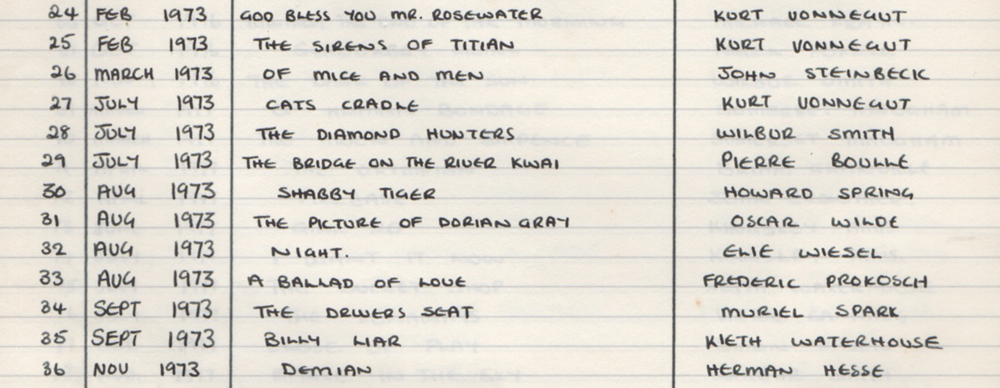 24 FEB 1973 GOD BLESS YOU MR. ROSEWATER KURT VONNEGUT
25 FEB 1973 THE SIRENS OF TITIAN KURT VONNEGUT
26 MARCH 1973 OF MICE AND MEN JOHN STEINBECK
27 JULY 1973 CATS CRADLE KURT VONNEGUT
28 JULY 1973 THE DIAMOND HUNTERS WILBUR SMITH
29 JULY 1973 THE BRIDGE ON THE RIVER KWAI PIERRE BOULLE
30 AUG 1973 SHABBY TIGER HOWARD SPRING
31 AUG 1973 THE PICTURE OF DORIAN GRAY OSCAR WILDE
32 AUG 1973 NIGHT. ELIE WIESEL
33 AUG 1973 A BALLAD OF LOVE FREDERIC PROKOSCH
34 SEPT 1973 THE DRIVERS SEAT MURIEL SPARK
35 SEPT 1973 BILLY LIAR KIETH WATERHOUSE
36 NOV 1973 DEMIAN HERMAN HESSE